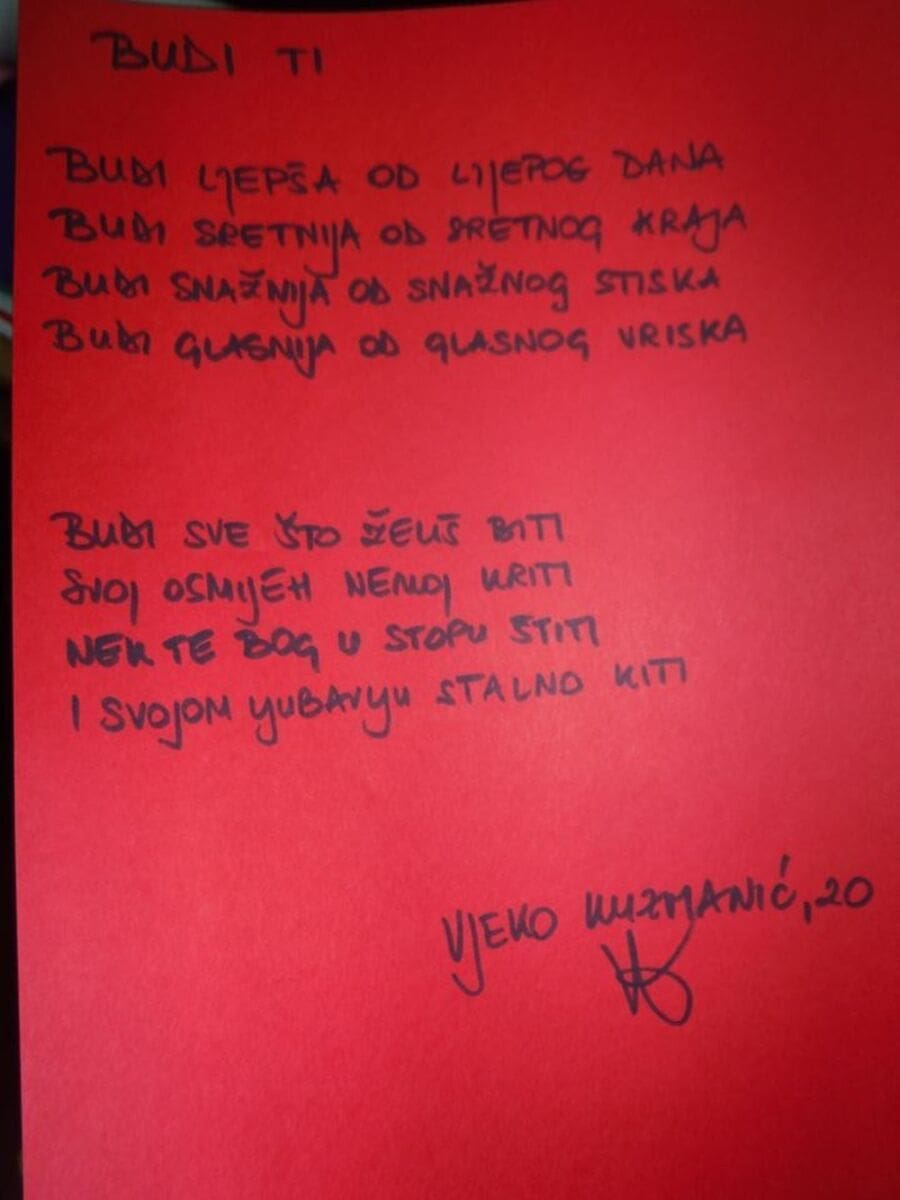 BUDI TI
BUDI LJEPŠA OD LIJEPOG DANA
BUDI SRETNIJA OD SRETNOG KRAJA
BUDI SNAŽNIJA OD SNAŽNOG STISKA
BUDI GLASNIJA OD GLASNOG VRISKA
BUDI SVE ŠTO ŽELIŠ BITI
SVOJ OSMIJEH NEMOJ KRITI
NEK TE BOG U STOPU ŠTITI
I SVOJOM LJUBAVLJU STALNO KITI
VJEKO KUZMANIĆ, 20